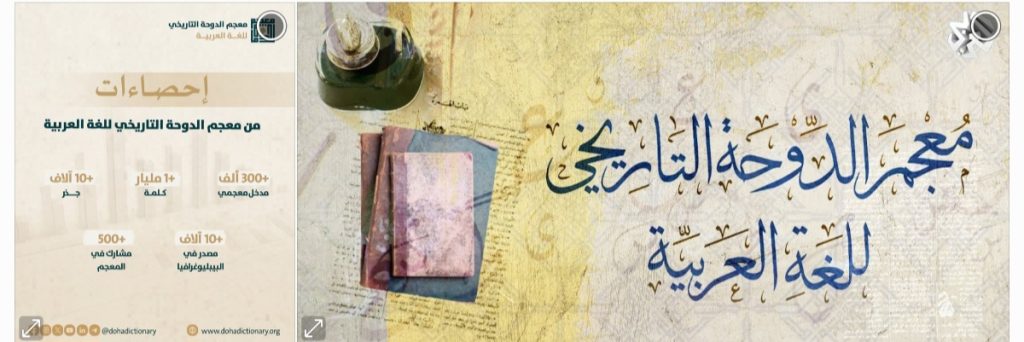 معجم الدوحة التاريخي
للغة العربية
إحصاءات
من معجم الدوحة التاريخي للغة العربية
+300 ألف
مدخل معجمي
+1 مليار
كلمة
+10 آلاف
جذر
+10 آلاف
مصدر في
الببليوغرافيا
+500
مشارك في
المعجم
@dohadictionary
www.dohadictionary.org
مُعْجَم الدَّوحَة التَّارِيخي
للغَةِ العَرَبيَّة